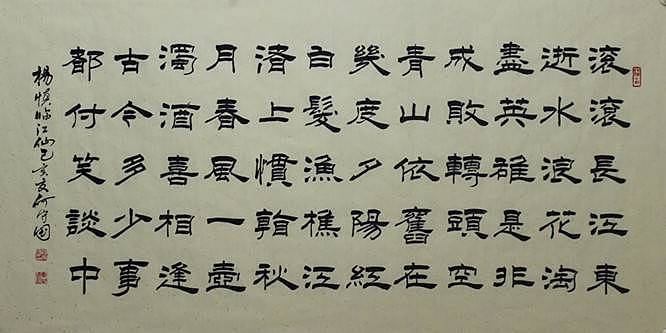 滾滾長江東
逝水浪花淘
盡英雄是非
成敗轉頭空
青山依舊在
幾度夕陽紅
白髮漁樵江
渚上慣看秋
月春風一壺
濁酒喜相逢
古今多少事
都付笑談中
楊慎临江仙己亥夏何守國